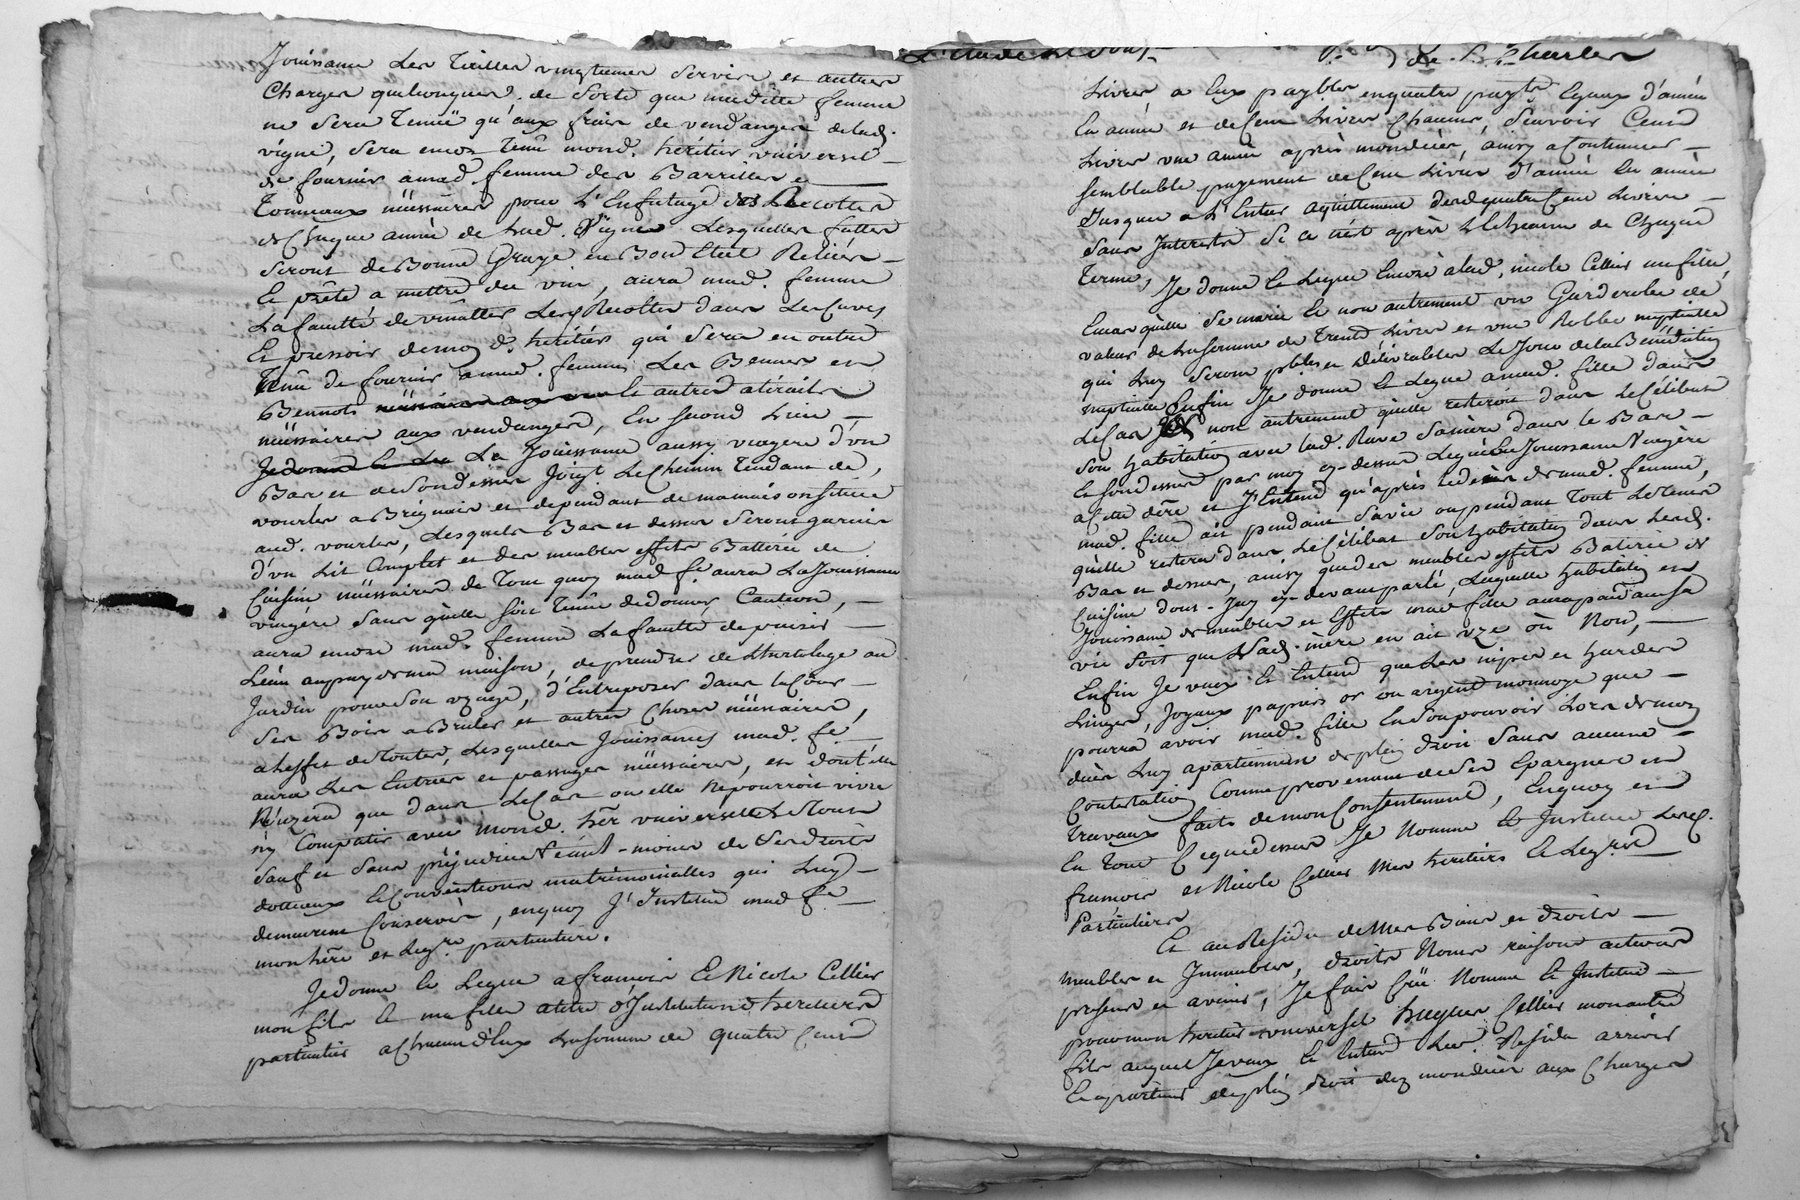 Jouissance des tailles vingtiemes servis et autres
charges quelconques. de sorte que madite femme
ne sera tenüe qu'aux frais de vendanges de lad.
vigne, sera encor tenû mond. heritier universel
de fournir a mad. femme des Barrilles et
Tonneaux nécessaires pour l'Enfutage des Recoltes
de chaque année de lad. Vigne Lesquelles futtes
seront de Bonne Graye en Bon Etat Reliées
Et prête a mettre du vin, aura mad. femme
La faculté de Recolter dans les cuves
Et pressoir de mond. héritier qui sera en outre
tenû de fournir a mad. femme Les Bennes et
Bennots et autres atirails
nécessaires aux vendanges, En second Lieu
La Jouissance aussy viagere d'un
Bas et de son dessus Joigt. Le Chemin tendant de
vourles a Brignais et dependant de ma maison située
aud. vourles, Lesquels Bas et dessus seront garnis
d'un Lit Complet et des meubles effets Batterie de
Cuisine nécessaires de tout quoy mad. fe. aura La Jouissance
viagére sans qu'elle soit tenüe de donner Caution,
aura encore mad. femme La faculté de puiser
L'eau au puy de ma maison, de prendre de l'hortolage au
Jardin pour son uzage, d'Entreposer dans la Cour
ses Bois a Bruler et autres choses nécessaires,
a l'effet de toutes Lesquelles Jouissances mad. fe.
aura Les Entrées et passages nécessaires, et dont elle
N'uzera que dans Le Cas ou elle ne pourroit vivre
ny Compatir avec mond. hér. universel Le tout
sauf et sans préjudice Néant-moins de ses droits
dotteaux et Conventions matrimonialles qui Luy
demeurent Conservés, enquoy J'Institue mad. fe.
mon hére. et Legre. particulière.
Je donne et Legue a francois Et Nicole Cellier
mon fils et ma fille a titre d'Institution d'heritiers
particuliers a chacun d'Eux La somme de quatre Cens
de St. Charles
Livres a Eux payables en quatre payts. Egaux d'année
En année et de Cent Livres chacun, sçavoir Cent
Livres une année après mon décès, ainsy a Continuer
semblable payement de Cent Livres d'année En année
Jusques a L'Entier aquittement desd. quatre Cent Livres
sans Interests si ce n'est après L'Echeance de Chaque
terme, Je donne et Legue Encore a lad. nicole Cellier ma fille,
Encas qu'elle se marie et non autrement un Garderobe de
valeur de La somme de Trente Livres et une Robbe nuptialle
qui Luy seront pbles. et délivrables Le Jour de la Bénédiction
nuptialle Enfin Je donne et Legue a mad. fille dans
Le Cas non autrement qu'elle resteroit dans Le Célibat
son habitation avec lad. sa mère dans le Bas
Et son dessus par moy cy-dessus Legués En Jouissance Viagère
a Cette dére. et J'Entend qu'après Le décès de mad. femme,
mad. fille ait pendant sa vie ou pendant Tout Le tems
qu'elle restera dans Le Célibat son habitation dans lesd.
Bas et dessus, ainsy que des meubles effets Baterie de
Cuisine dont J'ay cy-devant parlé, Laquelle habitation et
Jouissance de meubles et Effets mad. fille aura pendant sa
vie soit que sad. mère en ait uzé ou Non,
Enfin Je veux Et Entend que Les nipes et hardes
Linges, Joyaux papiers or ou argent monnoye que
pourra avoir mad. fille En son pouvoir Lors de mon
decès Luy apartiennent de plein droit sans aucune
Contestation Comme provenant de ses Epargnes et
Travaux faits de mon Consentement, Enquoy et
En tout Ce que dessus Je Nomme et Institue Lesd.
francois et Nicole Cellier Mes heritiers et Legres.
Particuliers
Et au Residu de Mes Biens et droits
meubles et Immeubles, droits Noms raisons actions
présens et avenir, Je fais Crée Nomme Et Institue
pour mon heritier universel hugues Cellier mon autre
fils auquel Je veux Et Entend Led. Residu arriver
Et apartenir de plein droit dez mon décès aux Charges